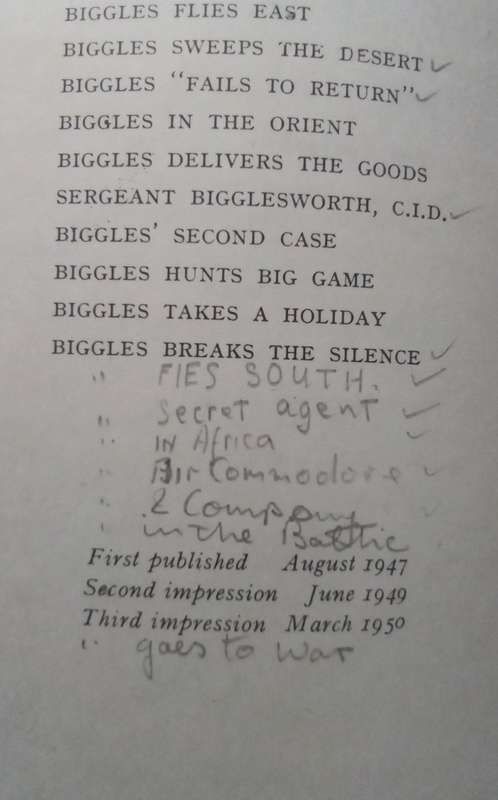 BIGGLES FLIES EAST
BIGGLES SWEEPS THE DESERT ✓
BIGGLES "FAILS TO RETURN" ✓
BIGGLES IN THE ORIENT
BIGGLES DELIVERS THE GOODS
SERGEANT BIGGLESWORTH, C.I.D. ✓
BIGGLES' SECOND CASE
BIGGLES HUNTS BIG GAME
BIGGLES TAKES A HOLIDAY
BIGGLES BREAKS THE SILENCE ✓
" FIES SOUTH. ✓
" Secret agent ✓
" IN Africa ✓
" Air Commodore ✓
" & Company ✓
" in the Baltic
First published August 1947
Second impression June 1949
Third impression March 1950
" goes to War